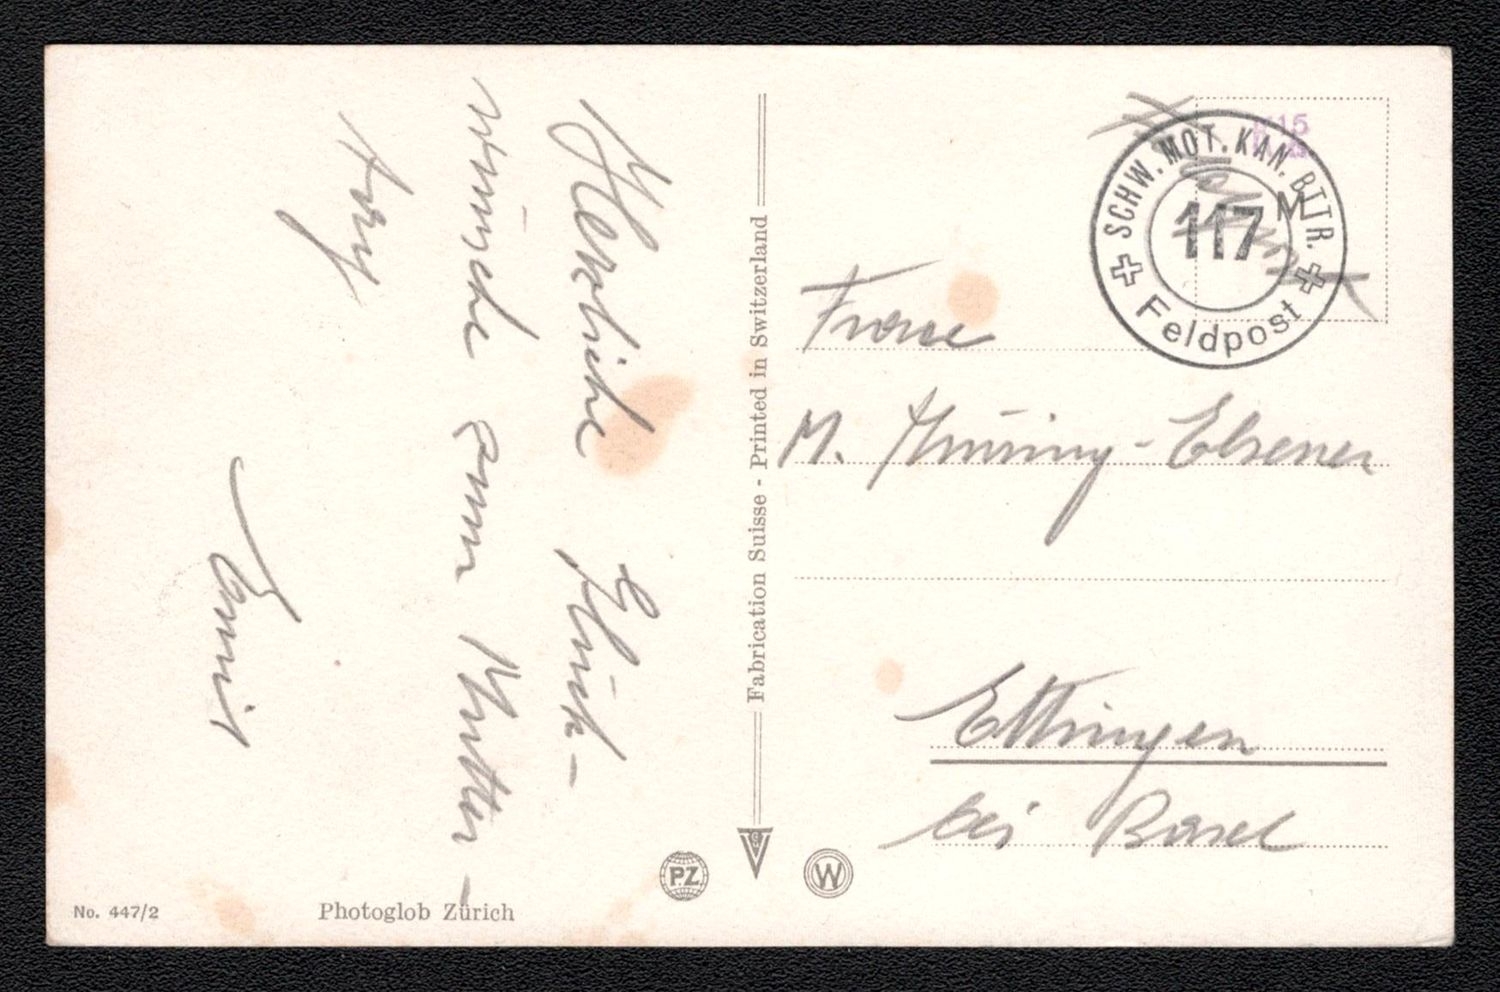 Herzliche Glück-
wünsche zum Mutter-
tag
Emil
Fabrication Suisse - Printed in Switzerland
SCHW. MOT. KAN. BTTR.
117
M
Feldpost
Feldpost
Frau
M. Thüring-Elsener
Ettingen
bei Basel
P.Z.
W
No. 447/2
Photoglob Zürich